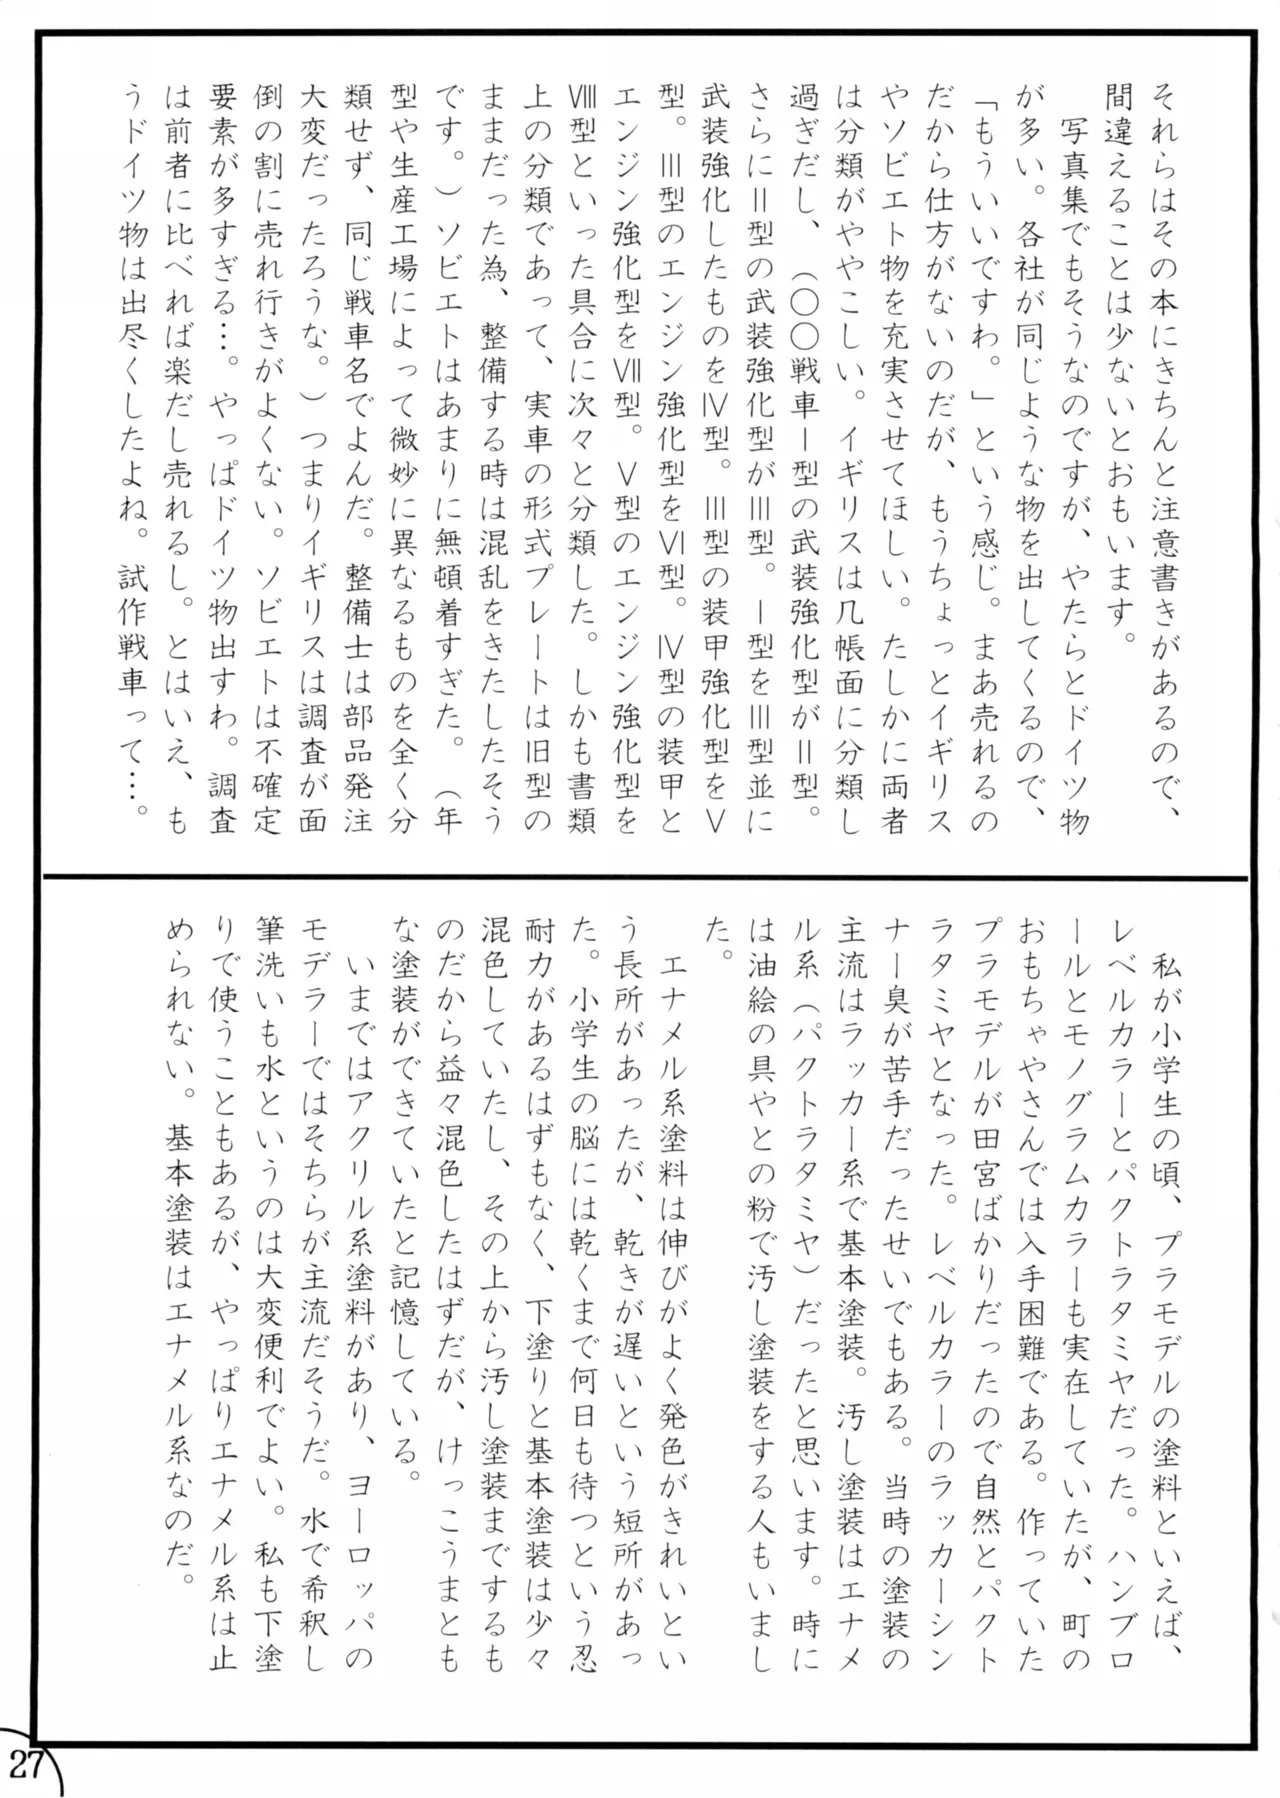 それらはその本にきちんと注意書きがあるので、
間違えることは少ないとおもいます。
写真集でもそうなのですが、やたらとドイツ物
が多い。各社が同じような物を出してくるので、
「もういいですわ。」という感じ。まあ売れるの
だから仕方がないのだが、もうちょっとイギリス
やソビエト物を充実させてほしい。たしかに両者
は分類がややこしい。イギリスは几帳面に分類し
過ぎだし、（〇〇戦車Ⅰ型の武装強化型がⅡ型。
さらにⅡ型の武装強化型がⅢ型。Ⅰ型をⅢ型並に
武装強化したものをⅣ型。Ⅲ型の装甲強化型をⅤ
型。Ⅲ型のエンジン強化型をⅥ型。Ⅳ型の装甲と
エンジン強化型をⅦ型。Ⅴ型のエンジン強化型を
Ⅷ型といった具合に次々と分類した。しかも書類
上の分類であって、実車の形式プレートは旧型の
ままだった為、整備する時は混乱をきたしたそう
です。）ソビエトはあまりに無頓着すぎた。（年
型や生産工場によって微妙に異なるものを全く分
類せず、同じ戦車名でよんだ。整備士は部品発注
大変だったろうな。）つまりイギリスは調査が面
倒の割に売れ行きがよくない。ソビエトは不確定
要素が多すぎる…。やっぱドイツ物出すわ。調査
は前者に比べれば楽だし売れるし。とはいえ、も
うドイツ物は出尽くしたよね。試作戦車って…。
私が小学生の頃、プラモデルの塗料といえば、
レベルカラーとパクトラタミヤだった。ハンブロ
ールとモノグラムカラーも実在していたが、町の
おもちゃやさんでは入手困難である。作っていた
プラモデルが田宮ばかりだったので自然とパクト
ラタミヤとなった。レベルカラーのラッカーシン
ナー臭が苦手だったせいでもある。当時の塗装の
主流はラッカー系で基本塗装。汚し塗装はエナメ
ル系（パクトラタミヤ）だったと思います。時に
は油絵の具やとの粉で汚し塗装をする人もいまし
た。
エナメル系塗料は伸びがよく発色がきれいとい
う長所があったが、乾きが遅いという短所があっ
た。小学生の脳には乾くまで何日も待つという忍
耐力があるはずもなく、下塗りと基本塗装は少々
混色していたし、その上から汚し塗装までするも
のだから益々混色したはずだが、けっこうまとも
な塗装ができていたと記憶している。
いまではアクリル系塗料があり、ヨーロッパの
モデラーではそちらが主流だそうだ。水で希釈し
筆洗いも水というのは大変便利でよい。私も下塗
りで使うこともあるが、やっぱりエナメル系は止
められない。基本塗装はエナメル系なのだ。
27